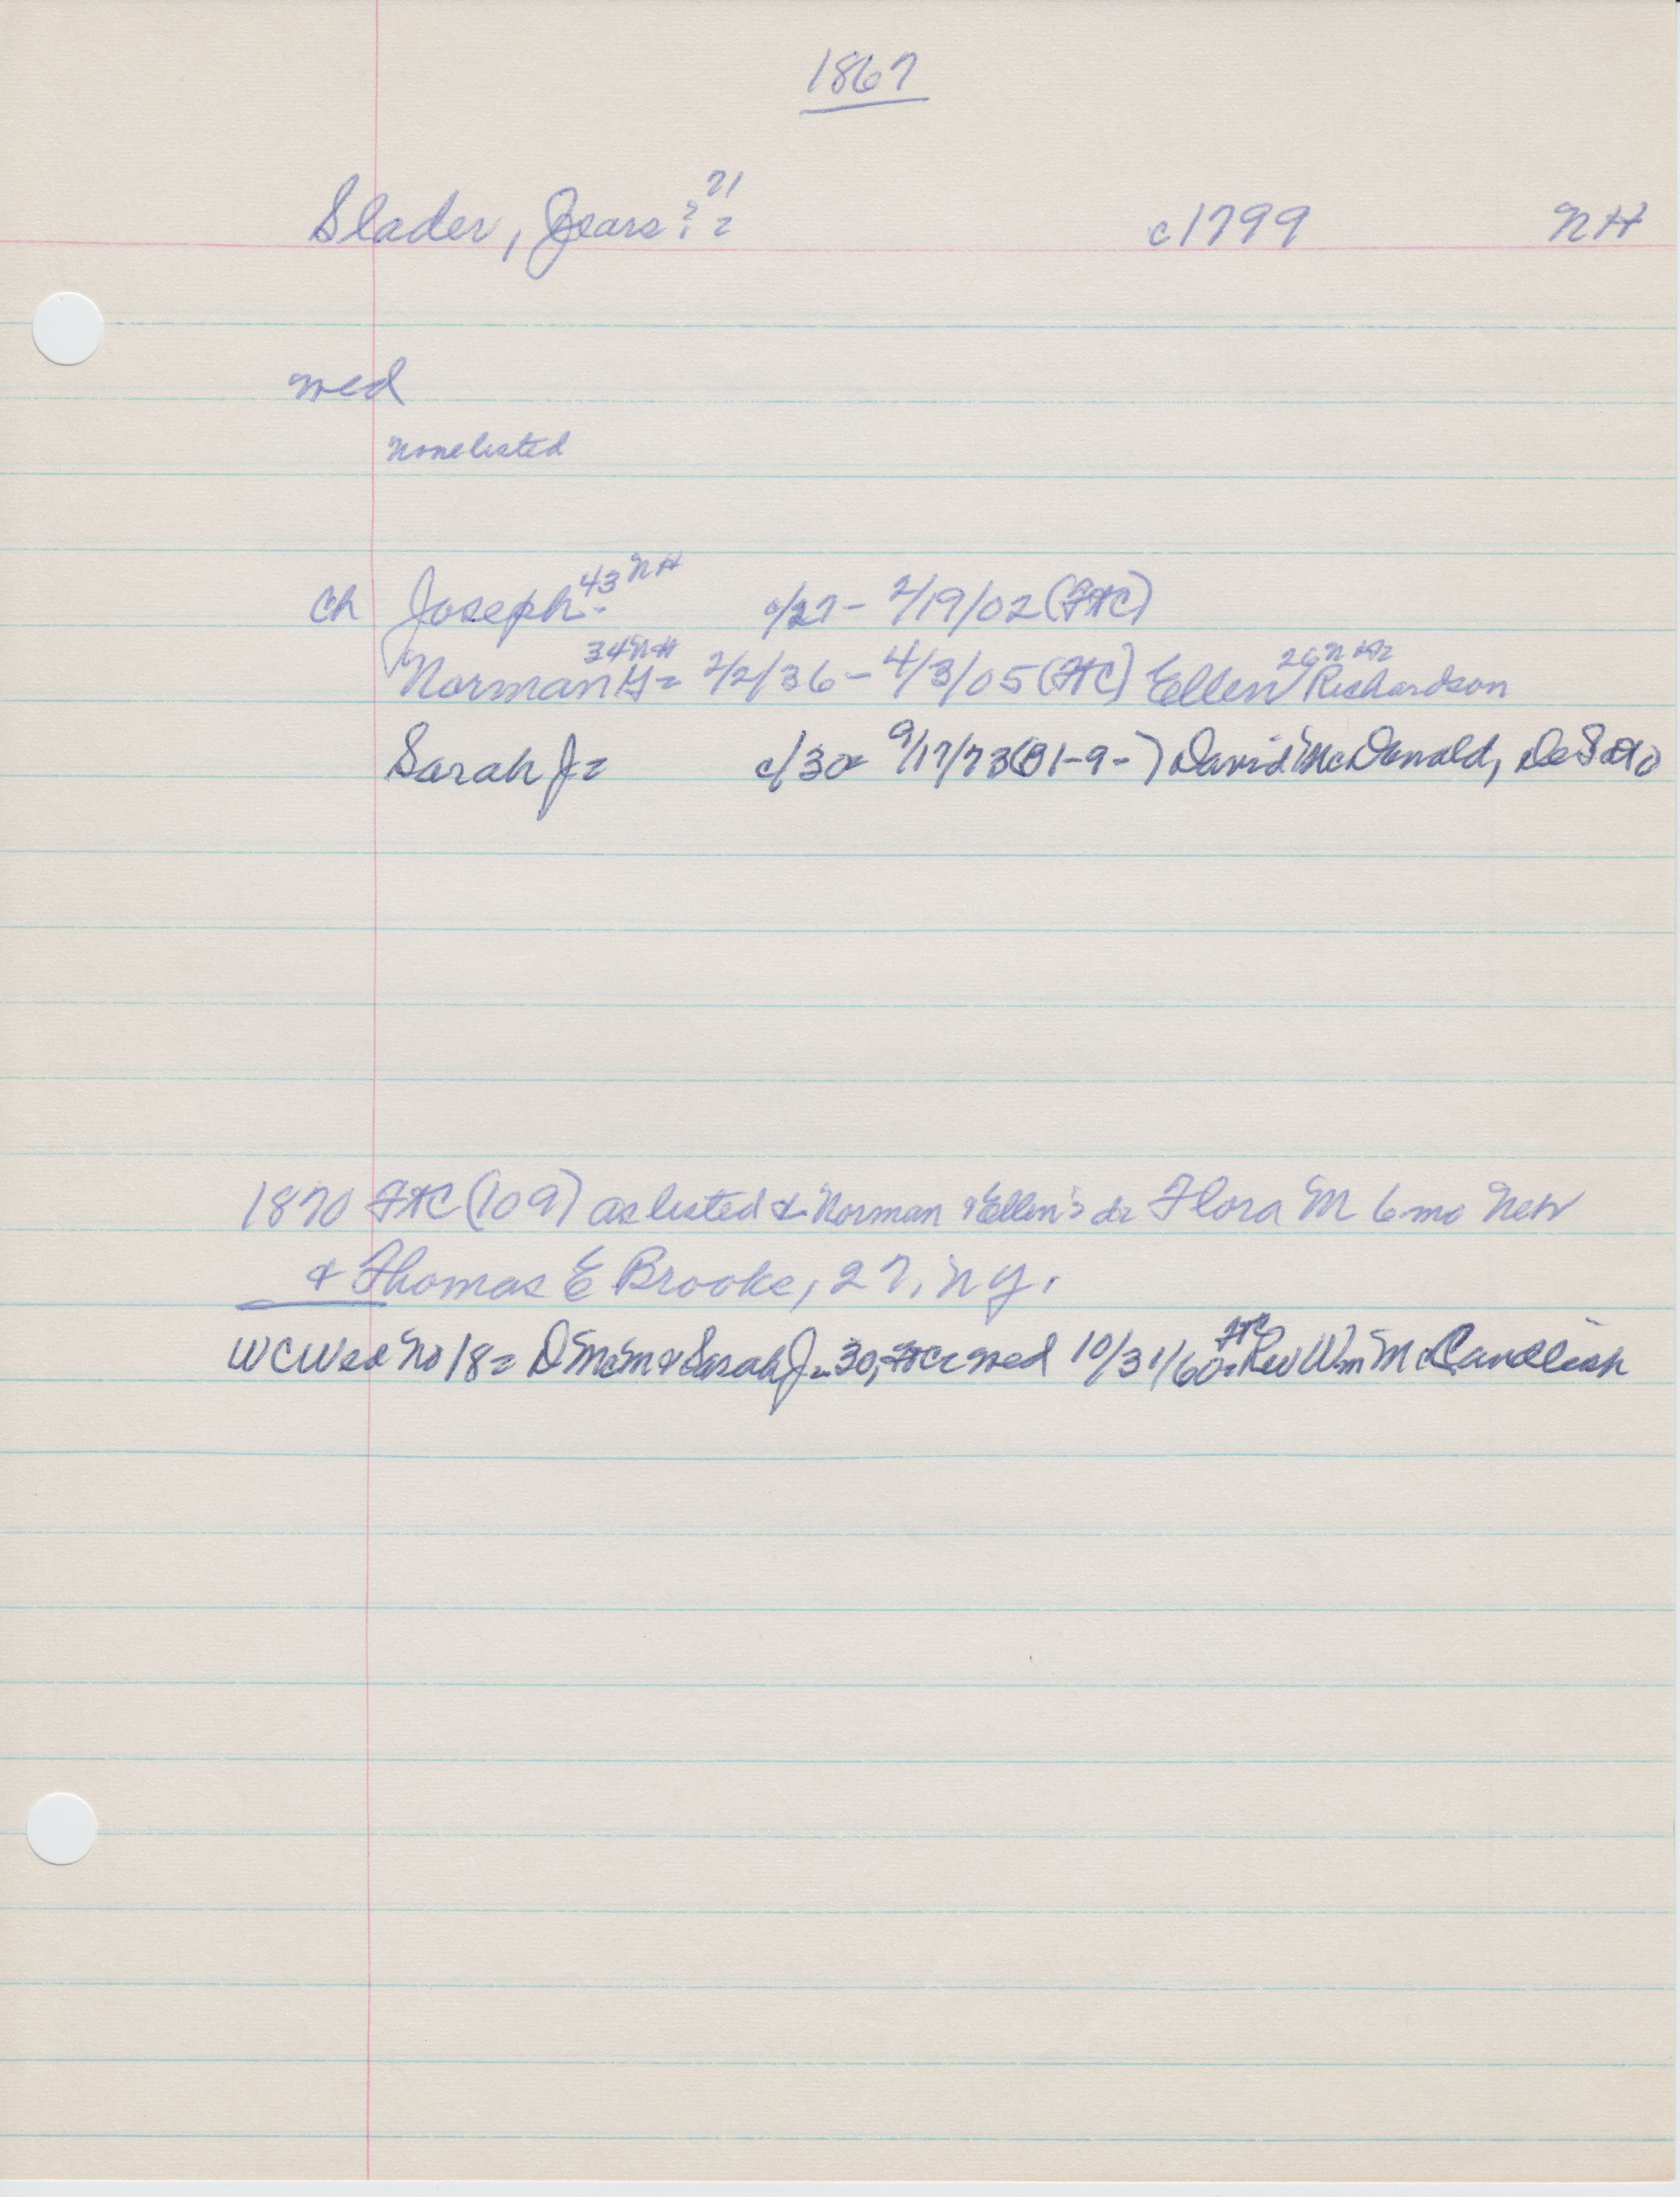 1867
Slader, Jears? 71 = c1799 NH
wed
none listed
ch Joseph 43 NH - c/27 - 2/19/02 (FtC)
Norman G 34 NH = 2/2/36 - 4/3/05 (FtC) Ellen 26 NH Richardson
Sarah J = c/30 9/17/73 (81-9-) David McDonald, DeSoto
1870 FtC (109) as listed & Norman & Ellen's da Flora M 6 mo Neb
& Thomas E Brooke, 27, NY.
WC Wed No 18 = D McM & Sarah J - 30, FtC wed 10/31/60 = FtC Rev Wm McCandlish